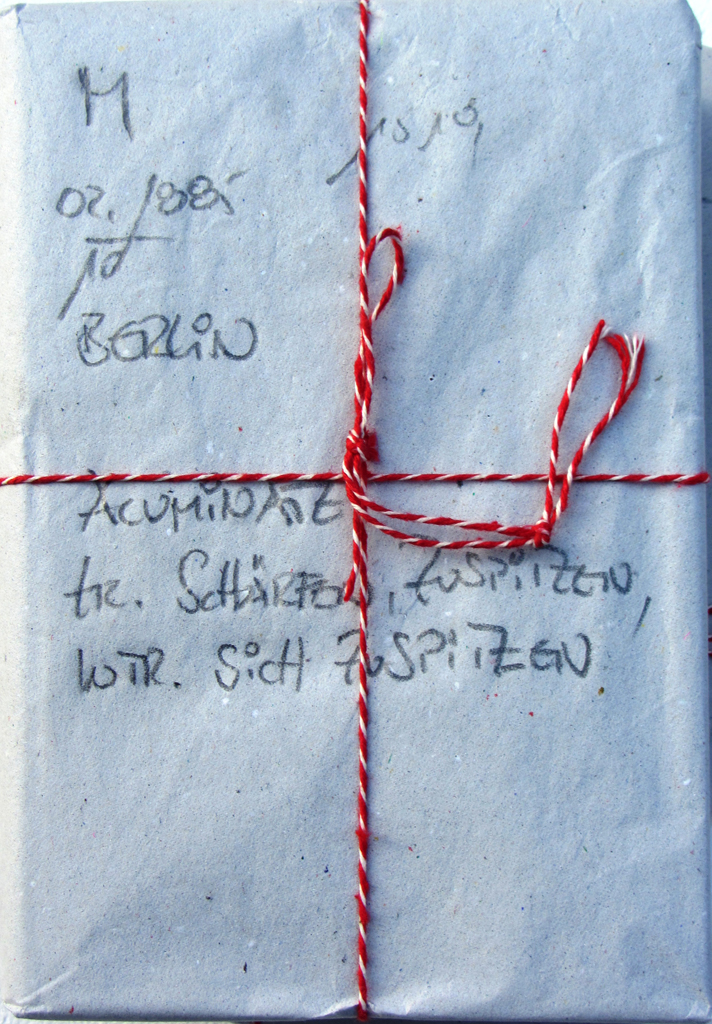 M
1019,
02. 1985
10
BERLIN
ACUMINATE
tr. SCHÄRFEN, ZUSPITZEN,
INTR. SICH ZUSPITZEN